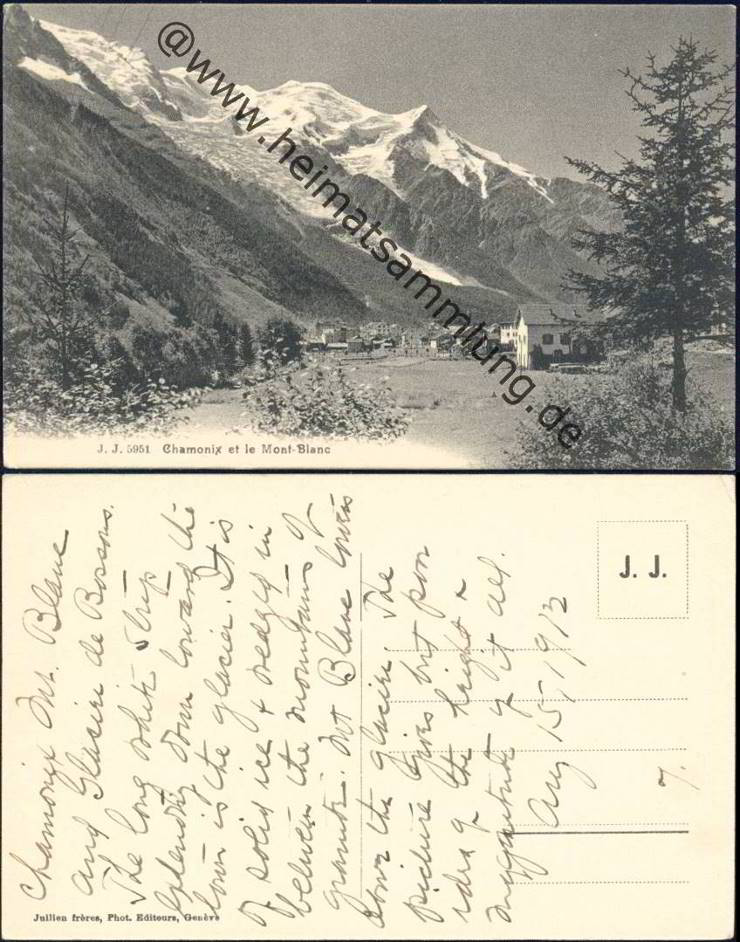 @www.heimatsammlung.de
J. J. 5951 Chamonix et le Mont-Blanc
J. J.
Chamonix Mt. Blanc
and Glacier de Bossons.
The long white strip
down toward the
town is the glacier. It is
of solid ice & wedged in
between the mountains of
granite. Mt Blanc towers
above the glacier. The
picture gives but poor
idea of the height &
magnitude of it all.
Aug 15, 1912
7.
Jullien frères, Phot. Editeurs, Genève